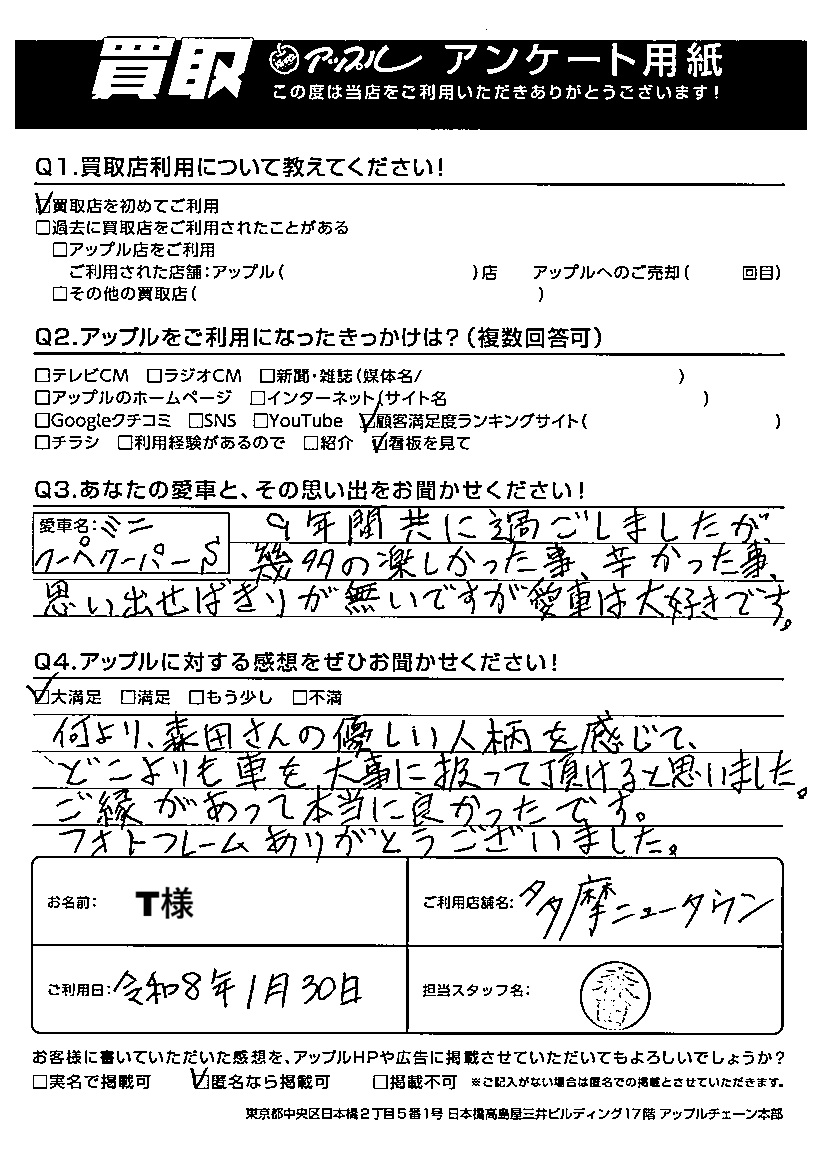 買取 アップル アンケート用紙
この度は当店をご利用いただきありがとうございます！
Q1.買取店利用について教えてください！
☑買取店を初めてご利用
□過去に買取店をご利用されたことがある
□アップル店をご利用
ご利用された店舗：アップル（　）店　アップルへのご売却（　回目）
□その他の買取店（　）
Q2.アップルをご利用になったきっかけは？（複数回答可）
□テレビCM □ラジオCM □新聞・雑誌（媒体名/　）
□アップルのホームページ □インターネット（サイト名　）
□Googleクチコミ □SNS □YouTube ☑顧客満足度ランキングサイト（　）
□チラシ □利用経験があるので □紹介 ☑看板を見て
Q3.あなたの愛車と、その思い出をお聞かせください！
愛車名：ミニ 9年間共に過ごしましたが、
クーペクーパーS 幾多の楽しかった事、辛かった事、
思い出せばきりが無いですが愛車は大好きです。
Q4.アップルに対する感想をぜひお聞かせください！
☑大満足 □満足 □もう少し □不満
何より、森田さんの優しい人柄を感じて、
どこよりも車を大事に扱って頂けると思いました。
ご縁があって本当に良かったです。
フォトフレームありがとうございました。
お名前： T様 ご利用店舗名：多摩ニュータウン
ご利用日：令和8年1月30日 担当スタッフ名： 森田
お客様に書いていただいた感想を、アップルHPや広告に掲載させていただいてもよろしいでしょうか？
□実名で掲載可 ☑匿名なら掲載可 □掲載不可 ※ご記入がない場合は匿名での掲載とさせていただきます。
東京都中央区日本橋2丁目5番1号 日本橋髙島屋三井ビルディング17階 アップルチェーン本部